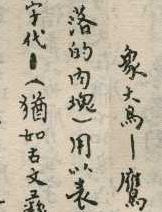 象大鳥—鷹
落的肉塊）用以表
字代—（猶如古文